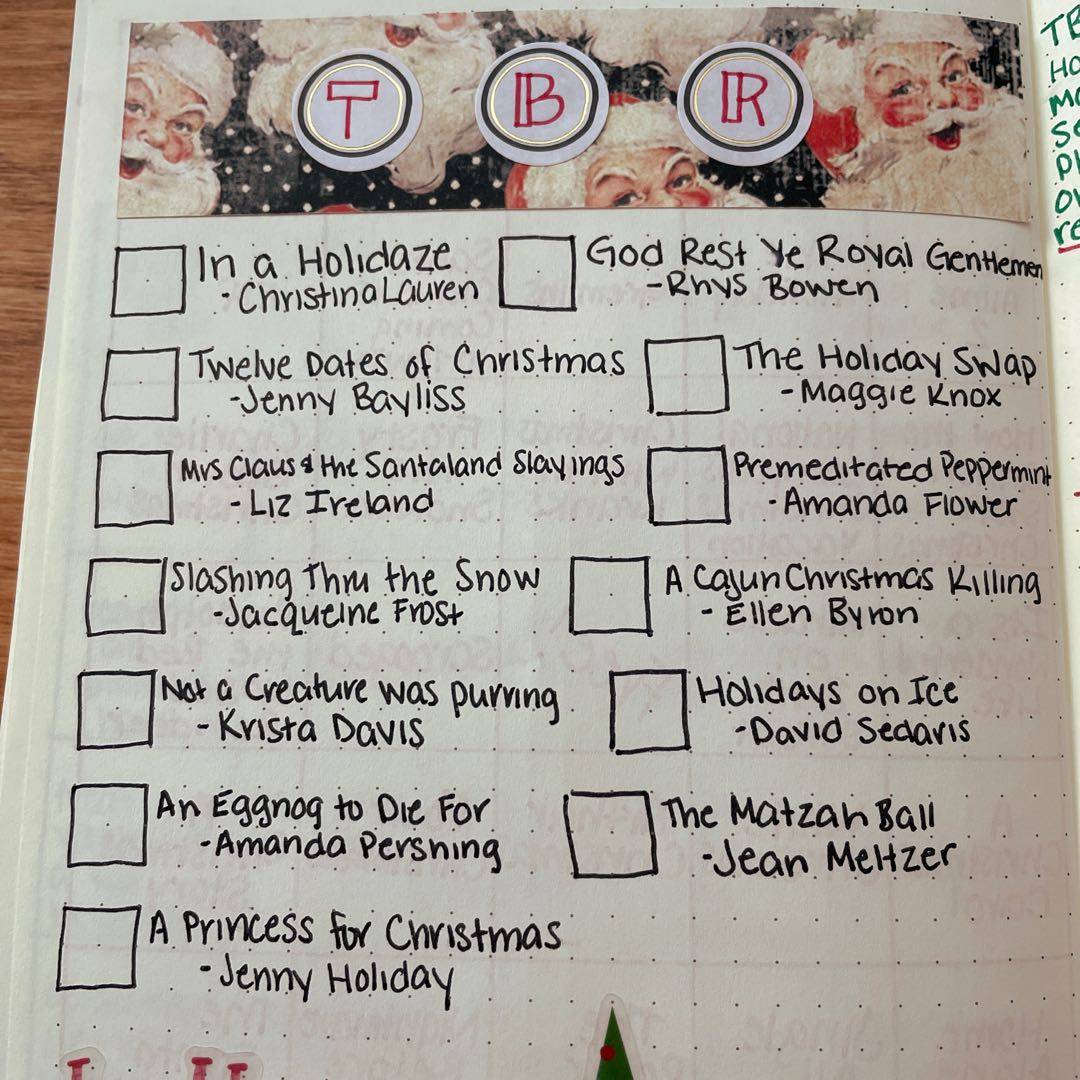 T B R
In a Holidaze
- Christina Lauren
God Rest Ye Royal Gentlemen
- Rhys Bowen
Twelve Dates of Christmas
- Jenny Bayliss
The Holiday Swap
- Maggie Knox
Mrs Claus & the Santaland Slayings
- Liz Ireland
Premeditated Peppermint
- Amanda Flower
Slashing Thru the Snow
- Jacqueine Frost
A Cajun Christmas Killing
- Ellen Byron
Not a Creature was purring
- Krista Davis
Holidays on Ice
- David Sedaris
An Eggnog to Die For
- Amanda Persning
The Matzah Ball
- Jean Meltzer
A Princess for Christmas
- Jenny Holiday